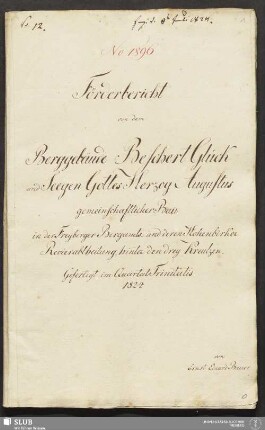 No 1896
Förderbericht
von dem
Berggebäude Beschert Glück
und Seegen Gottes Herzog Augustus
gemeinschaftlicher Bau
in der Freyberger Bergamts und deren Hohenbirker
Revierabtheilung hinter den drey Kreutzen.
Gefertiget im Quartale Trinitatis
1824
von
Ernst
SLUB